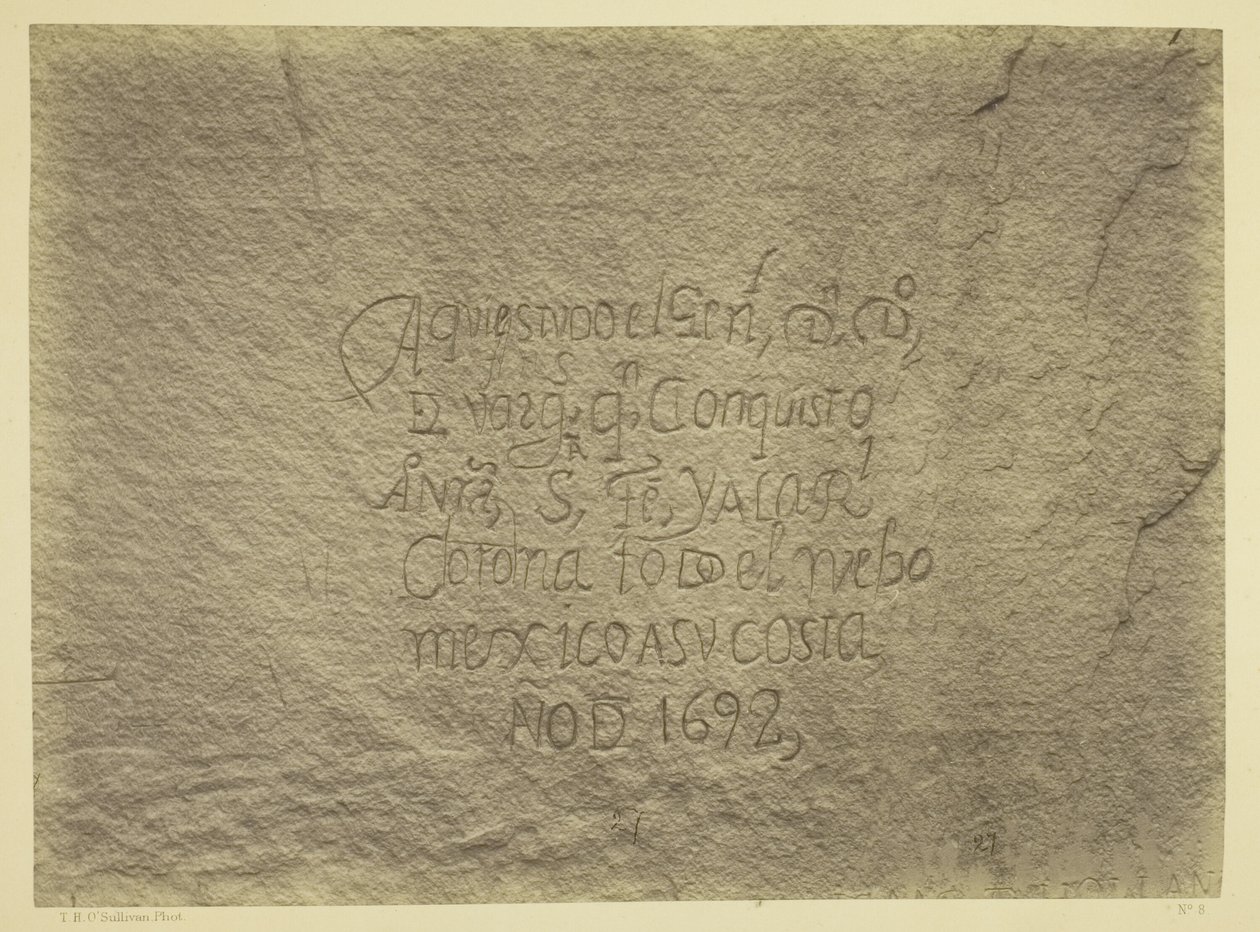 Aquiestuvo el Genl, D. Do,
D vargs, qn, Conquisto
ANrã, SA, Fē, YALAR1
Corona toDo el nuebo
mexico ASU costa
ÑOD 1692,
27
27
T. H. O'Sullivan. Phot.
No 8.